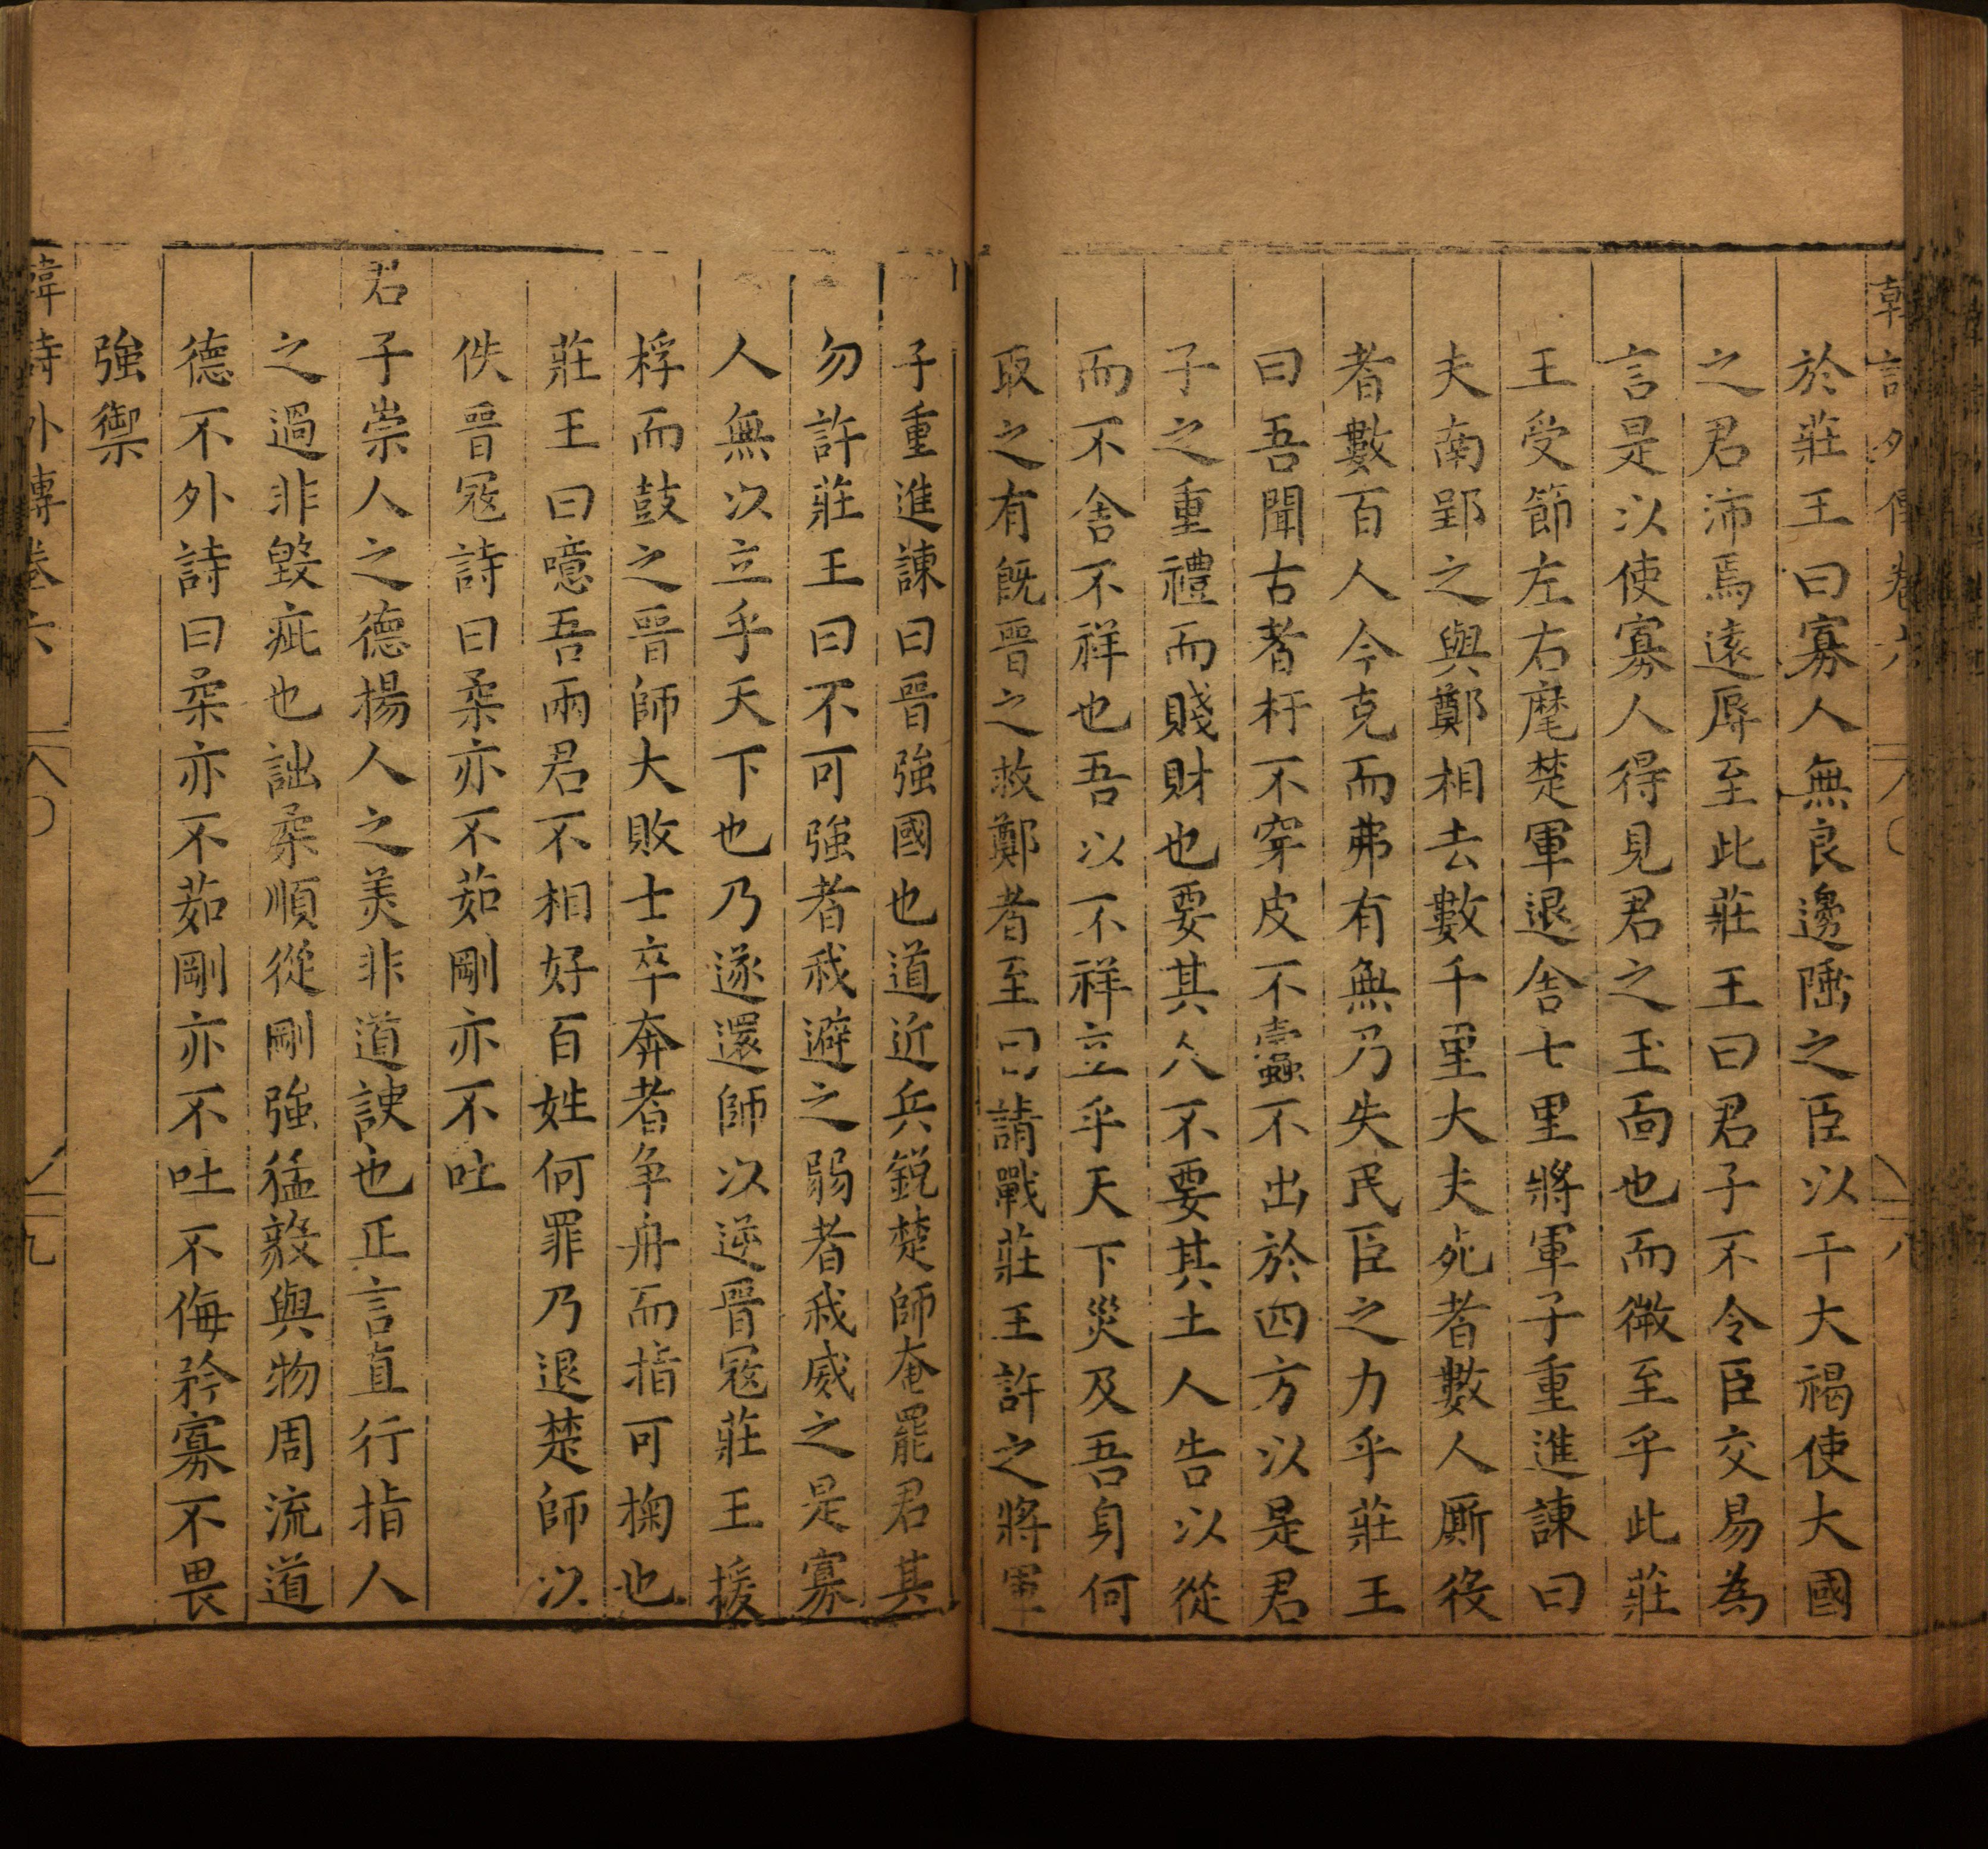 韓詩外傳卷六 八
於莊王曰寡人無良邊陲之臣以干大禍使大國
之君沛焉遠辱至此莊王曰君子不令臣交易為
言是以使寡人得見君之玉面也而微至乎此莊
王受節左右麾楚軍退舍七里將軍子重進諫曰
夫南郢之與鄭相去數千里大夫死者數人厮役
者數百人今克而弗有無乃失民臣之力乎莊王
曰吾聞古者杅不穿皮不蠹不出於四方以是君
子之重禮而賤財也要其人不要其土人告以從
而不舍不祥也吾以不祥立乎天下災及吾身何
取之有既晉之救鄭者至曰請戰莊王許之將軍
子重進諫曰晉強國也道近兵銳楚師奄罷君其
勿許莊王曰不可強者我避之弱者我威之是寡
人無以立乎天下也乃遂還師以逆晉寇莊王援
桴而鼓之晉師大敗士卒奔者争舟而指可掬也
莊王曰噫吾兩君不相好百姓何罪乃退楚師以
佚晉寇詩曰柔亦不茹剛亦不吐
君子崇人之德揚人之美非道諛也正言直行指人
之過非毀疵也詘柔順從剛強猛毅與物周流道
德不外詩曰柔亦不茹剛亦不吐不侮矜寡不畏
強禦
韓詩外傳卷六 九